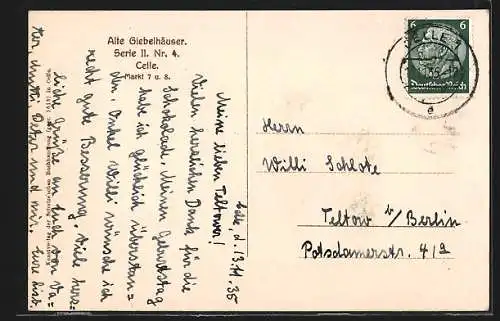 Alte Giebelhäuser.
Serie II. Nr. 4.
Celle.
Markt 7 u. 8.
Celle, d. 13.11.35
Meine lieben Teltower!
Vielen herzlichen Dank für die
Schokolade. Meinen Geburtstag
habe ich glücklich überstan=
den. Onkel Willi wünsche ich
recht gute Besserung. Viele herz=
liche Grüße an Euch von Va=
ter, Mutti, Peter und mir. Eure
6
Deutsches Reich
CELLE 1
a
Herrn
Willi Schlote
Teltow b/Berlin
Potsdamerstr. 4/a